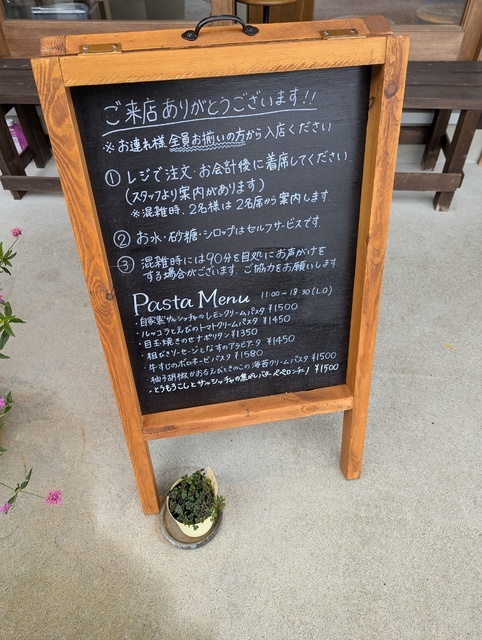 ご来店ありがとうございます!!
※お連れ様 全員お揃いの方から入店ください
① レジで注文・お会計後に着席してください
(スタッフより案内があります)
※混雑時、2名様は2名席から案内します
② お水・砂糖・シロップはセルフサービスです
③ 混雑時には90分を目処にお声がけを
する場合がございます ご協力をお願いします
Pasta Menu 11:00-18:30(L.O)
・自家製サルシッチャのレモンクリームパスタ ¥1500
・ルッコラとえびのトマトクリームパスタ ¥1450
・目玉焼きのせナポリタン ¥1350
・粗びきソーセージとなすのアラビアータ ¥1450
・牛すじのボロネーゼパスタ ¥1580
・柚子胡椒かおるえびときのこの海苔クリームパスタ ¥1500
・とうもろこしとサルシッチャの焦がしバターペペロンチーノ ¥1500